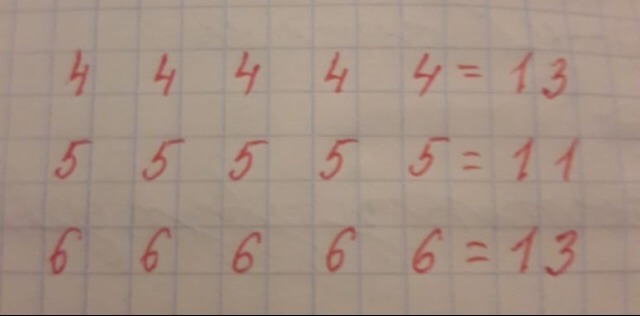 4 4 4 4 4 = 13
5 5 5 5 5 = 11
6 6 6 6 6 = 13